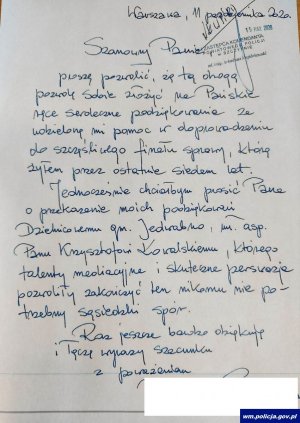 Warszawa, 11 października 2020.
15 PAŹ. 2020
ZASTĘPCA KOMENDANTA
POWIATOWEGO POLICJI
Szanowny Panie,
proszę pozwolić, że tą drogą
pozwolę sobie złożyć na Pańskie
ręce serdeczne podziękowania za
udzieloną mi pomoc w doprowadzeniu
do szczęśliwego finału sprawy, którą
żyłem przez ostatnie siedem lat.
Jednocześnie chciałbym prosić Pana
o przekazanie moich podziękowań
Dzielnicowemu gm. Jedwabno, mł. asp.
Panu Krzysztofowi Kowalskiemu, którego
talenty mediacyjne i skuteczna perswazja
pozwoliły zakończyć ten nikomu nie po-
trzebny sąsiedzki spór.
Raz jeszcze bardzo dziękuję
i łączę wyrazy szacunku
z poważaniem
wm.policja.gov.pl